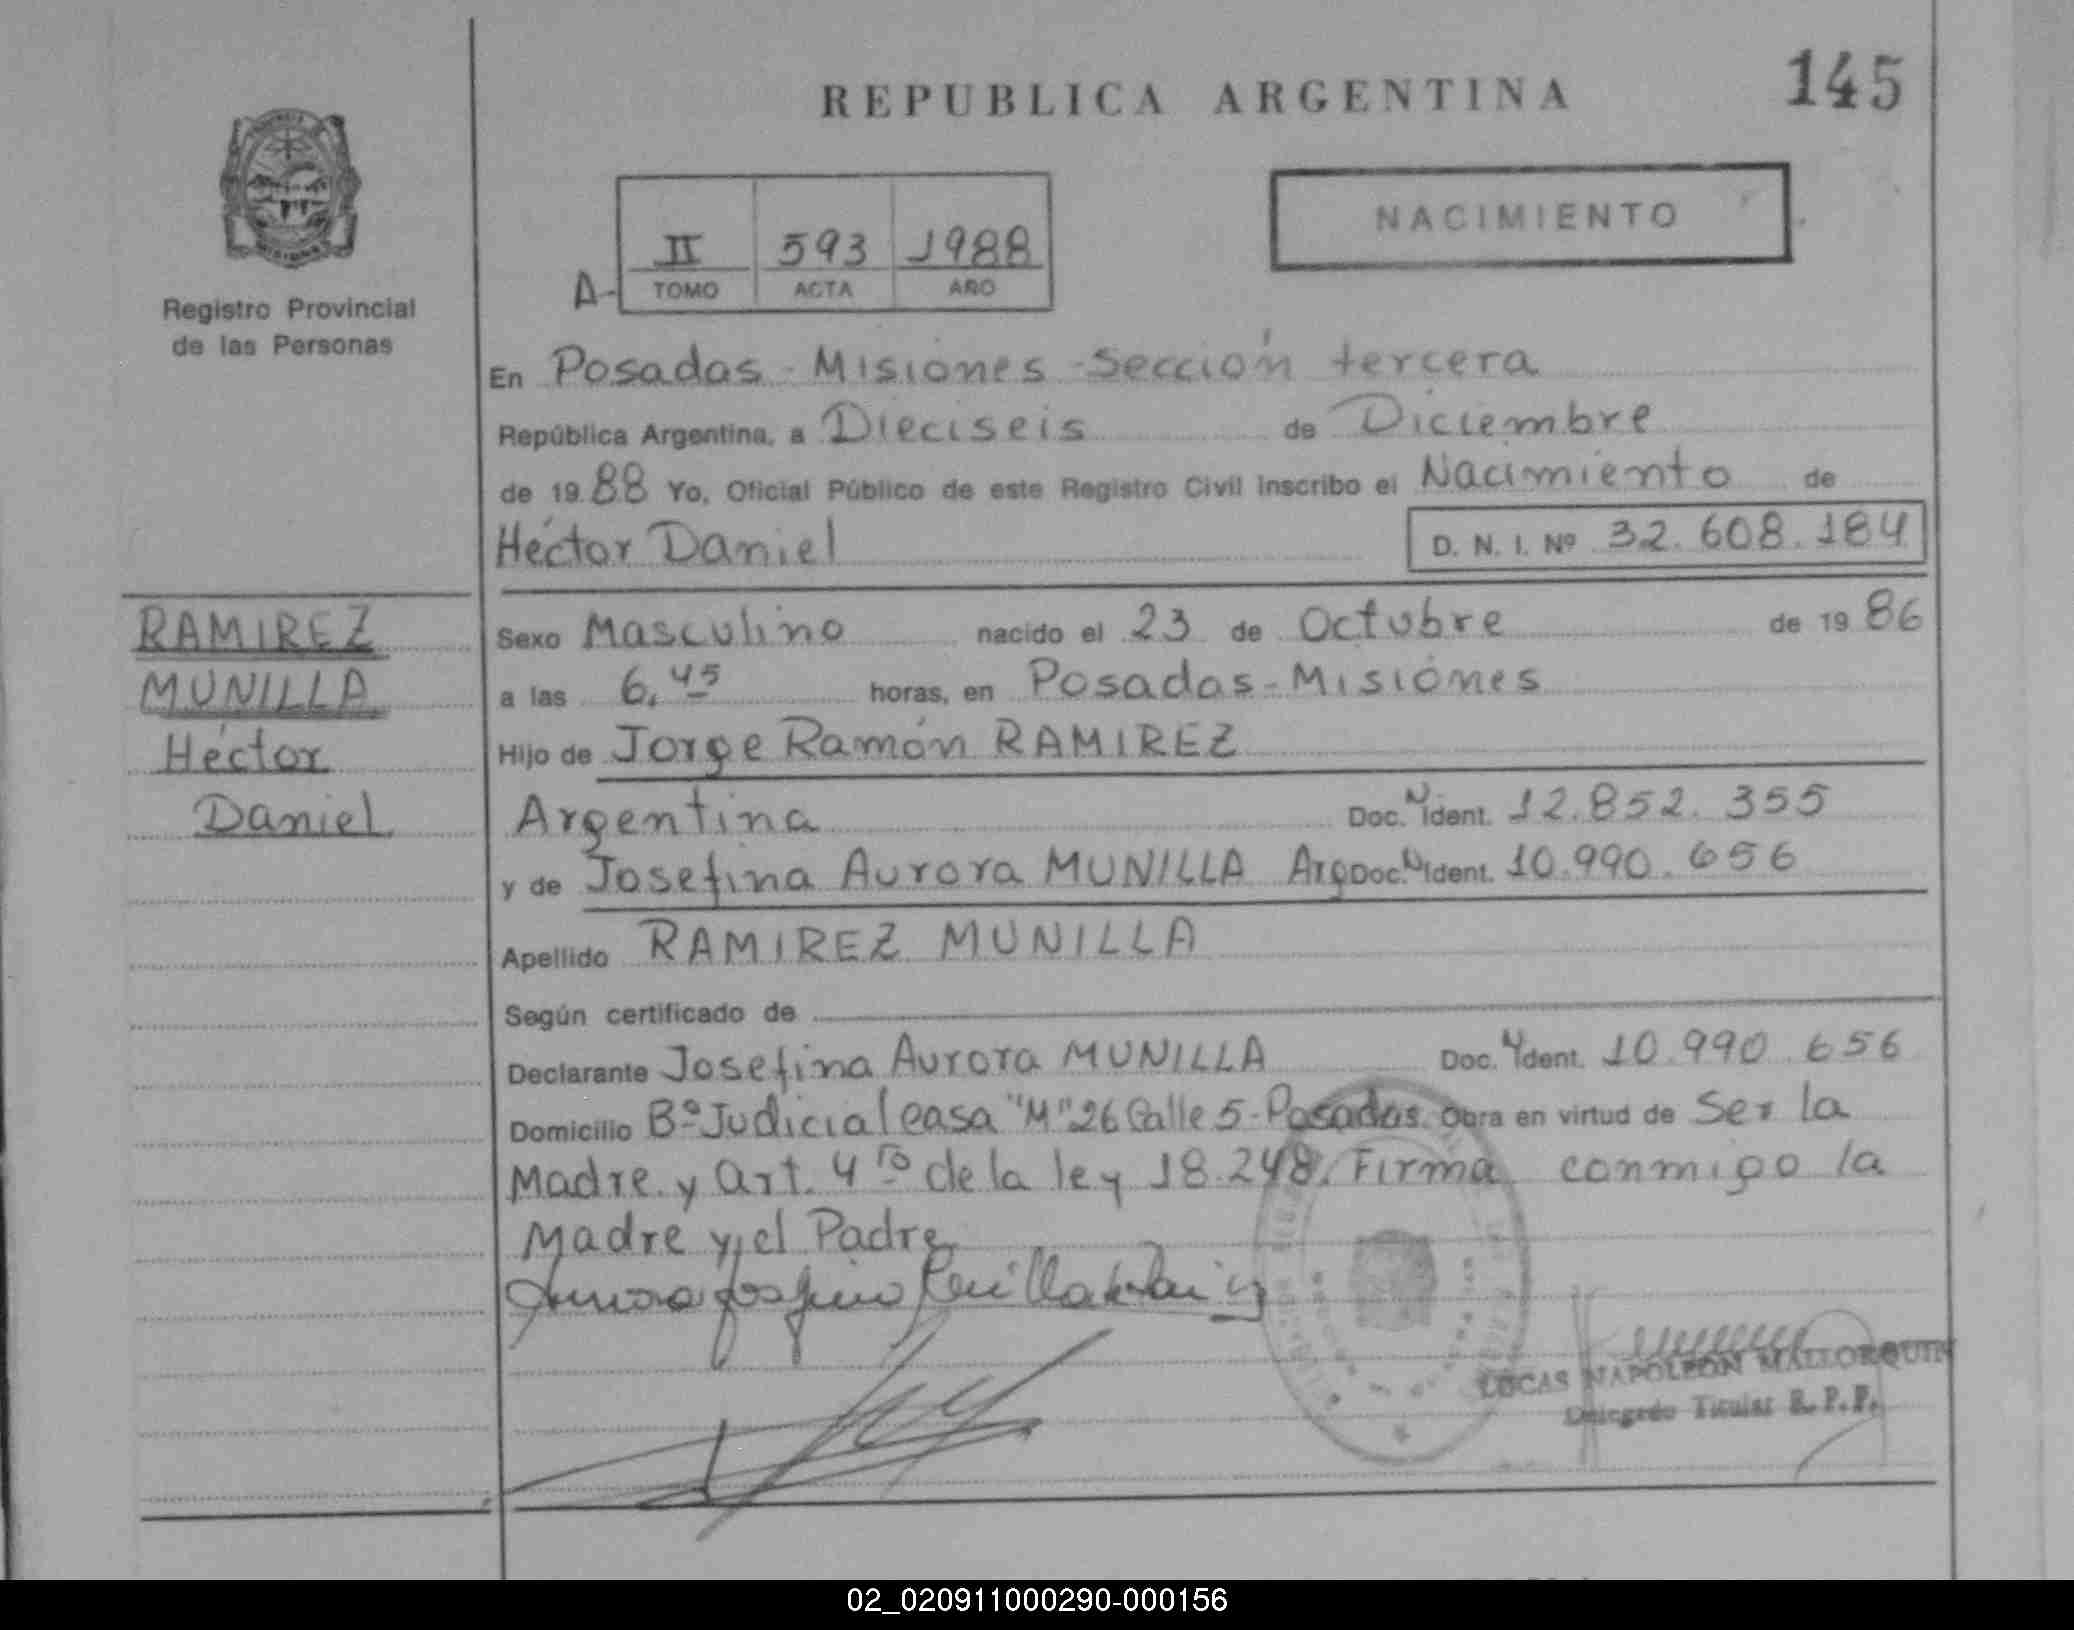 REPUBLICA ARGENTINA
145
Registro Provincial
de las Personas
II 593 1988
A- TOMO ACTA AÑO
NACIMIENTO
En Posadas - Misiones - Sección tercera
República Argentina, a Dieciseis de Diciembre
de 19 88 Yo, Oficial Público de este Registro Civil inscribo el Nacimiento de
Héctor Daniel D. N. I. Nº 32.608.184
RAMIREZ
MUNILLA
Héctor
Daniel
Sexo Masculino nacido el 23 de Octubre de 19 86
a las 6,45 horas, en Posadas - Misiones
Hijo de Jorge Ramón RAMIREZ
Argentina Doc. N Ident. 12.852.355
y de Josefina Aurora MUNILLA Arg Doc. N Ident. 10.990.656
Apellido RAMIREZ MUNILLA
Según certificado de
Declarante Josefina Aurora MUNILLA Doc. N Ident. 10.990.656
Domicilio Bº Judicial casa "M" 26 Calle 5 - Posadas. Obra en virtud de Ser la
Madre y art. 4ro de la ley 18.248. Firma conmigo la
Madre y el Padre
LUCAS NAPOLEON MALLORQUIN
Delegado Titular R. P. P.
02_020911000290-000156